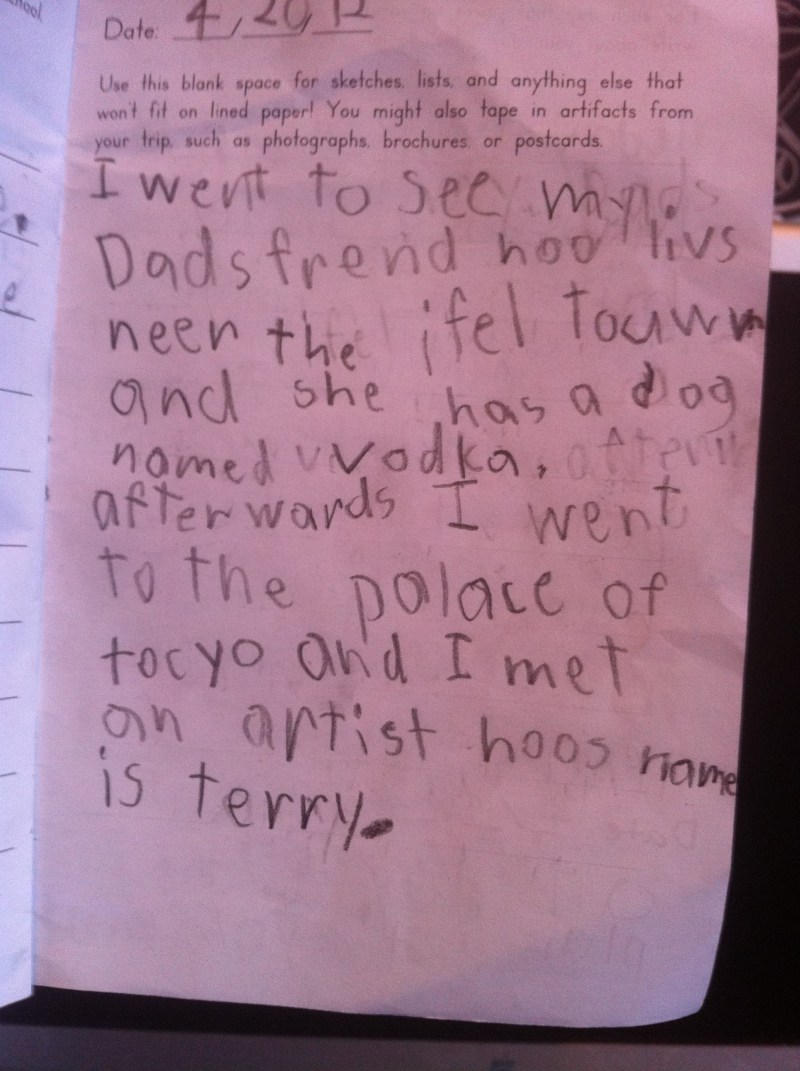 Date: 4, 20, 12
Use this blank space for sketches, lists, and anything else that
won't fit on lined paper! You might also tape in artifacts from
your trip, such as photographs, brochures, or postcards.
I went to see my
Dads frend hoo livs
neer the ifel touwn
and she has a dog
named vodka,
afterwards I went
to the palace of
tocyo and I met
an artist hoos name
is terry.